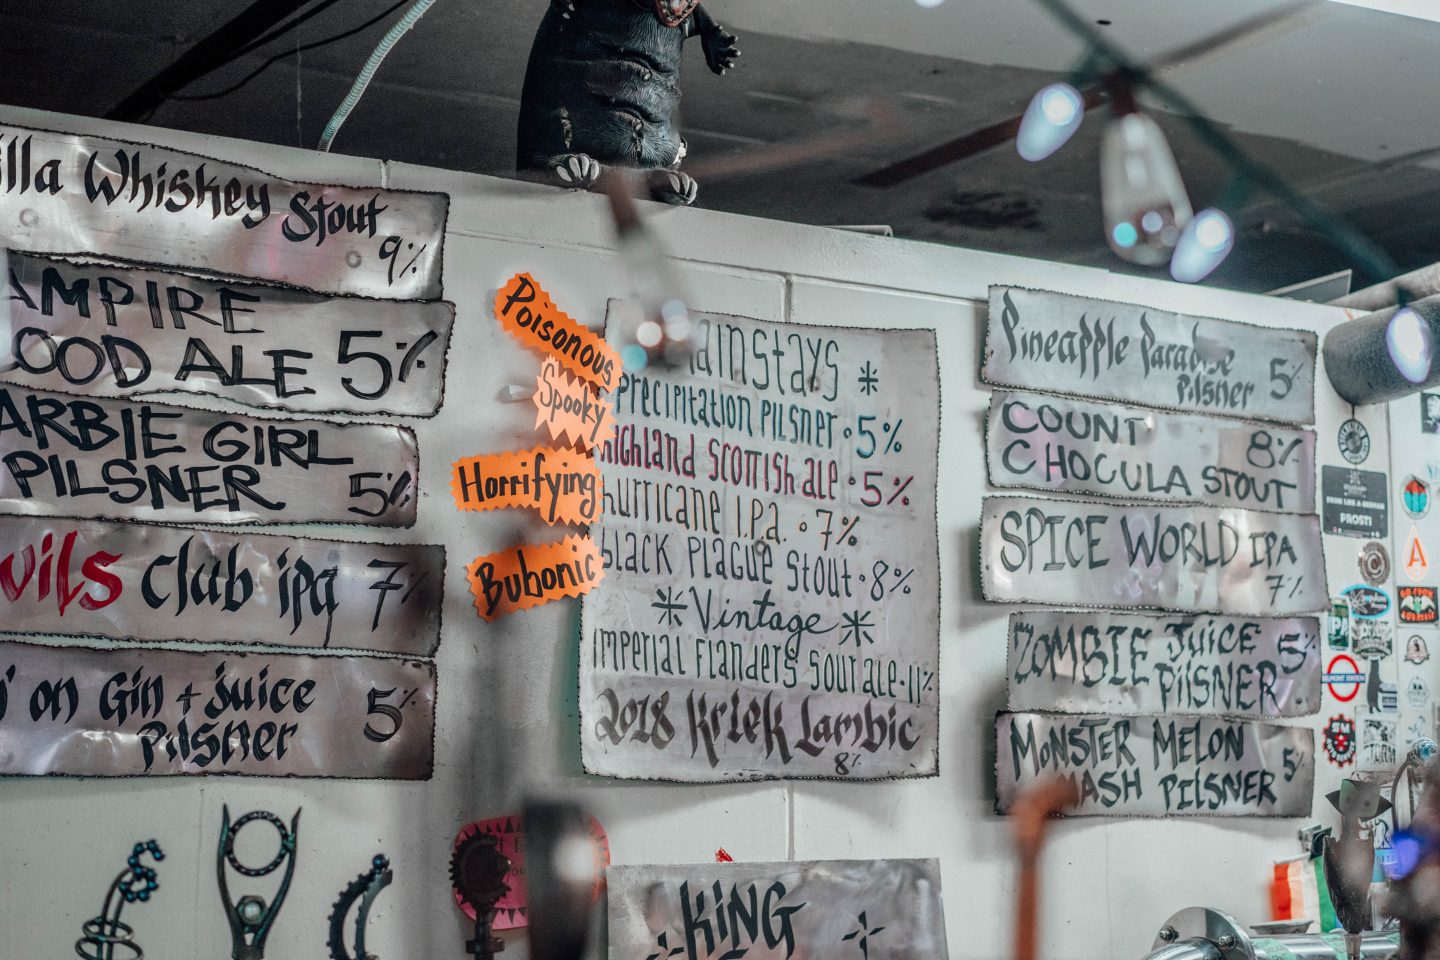 illa Whiskey Stout
9%
AMPIRE
OOD ALE 5%
ARBIE GIRL
PILSNER 5%
vils Club ipa 7%
' on Gin + juice
Pilsner 5%
Poisonous
Spooky
Horrifying
Bubonic
ainstays *
Precipitation Pilsner • 5%
Highland Scottish ale • 5%
hurricane I.P.a. • 7%
black Plague Stout • 8%
* Vintage *
Imperial Flanders Sour ale • 11%
2018 Kriek Lambic
8%
KING
Pineapple Paradise
Pilsner 5%
COUNT 8%
CHOCULA STOUT
SPICE WORLD IPA
7%
ZOMBIE JUICE 5%
PILSNER
MONSTER MELON
MASH PILSNER 5%
DRINK LIKE A GERMAN
PROST!
A
IPA